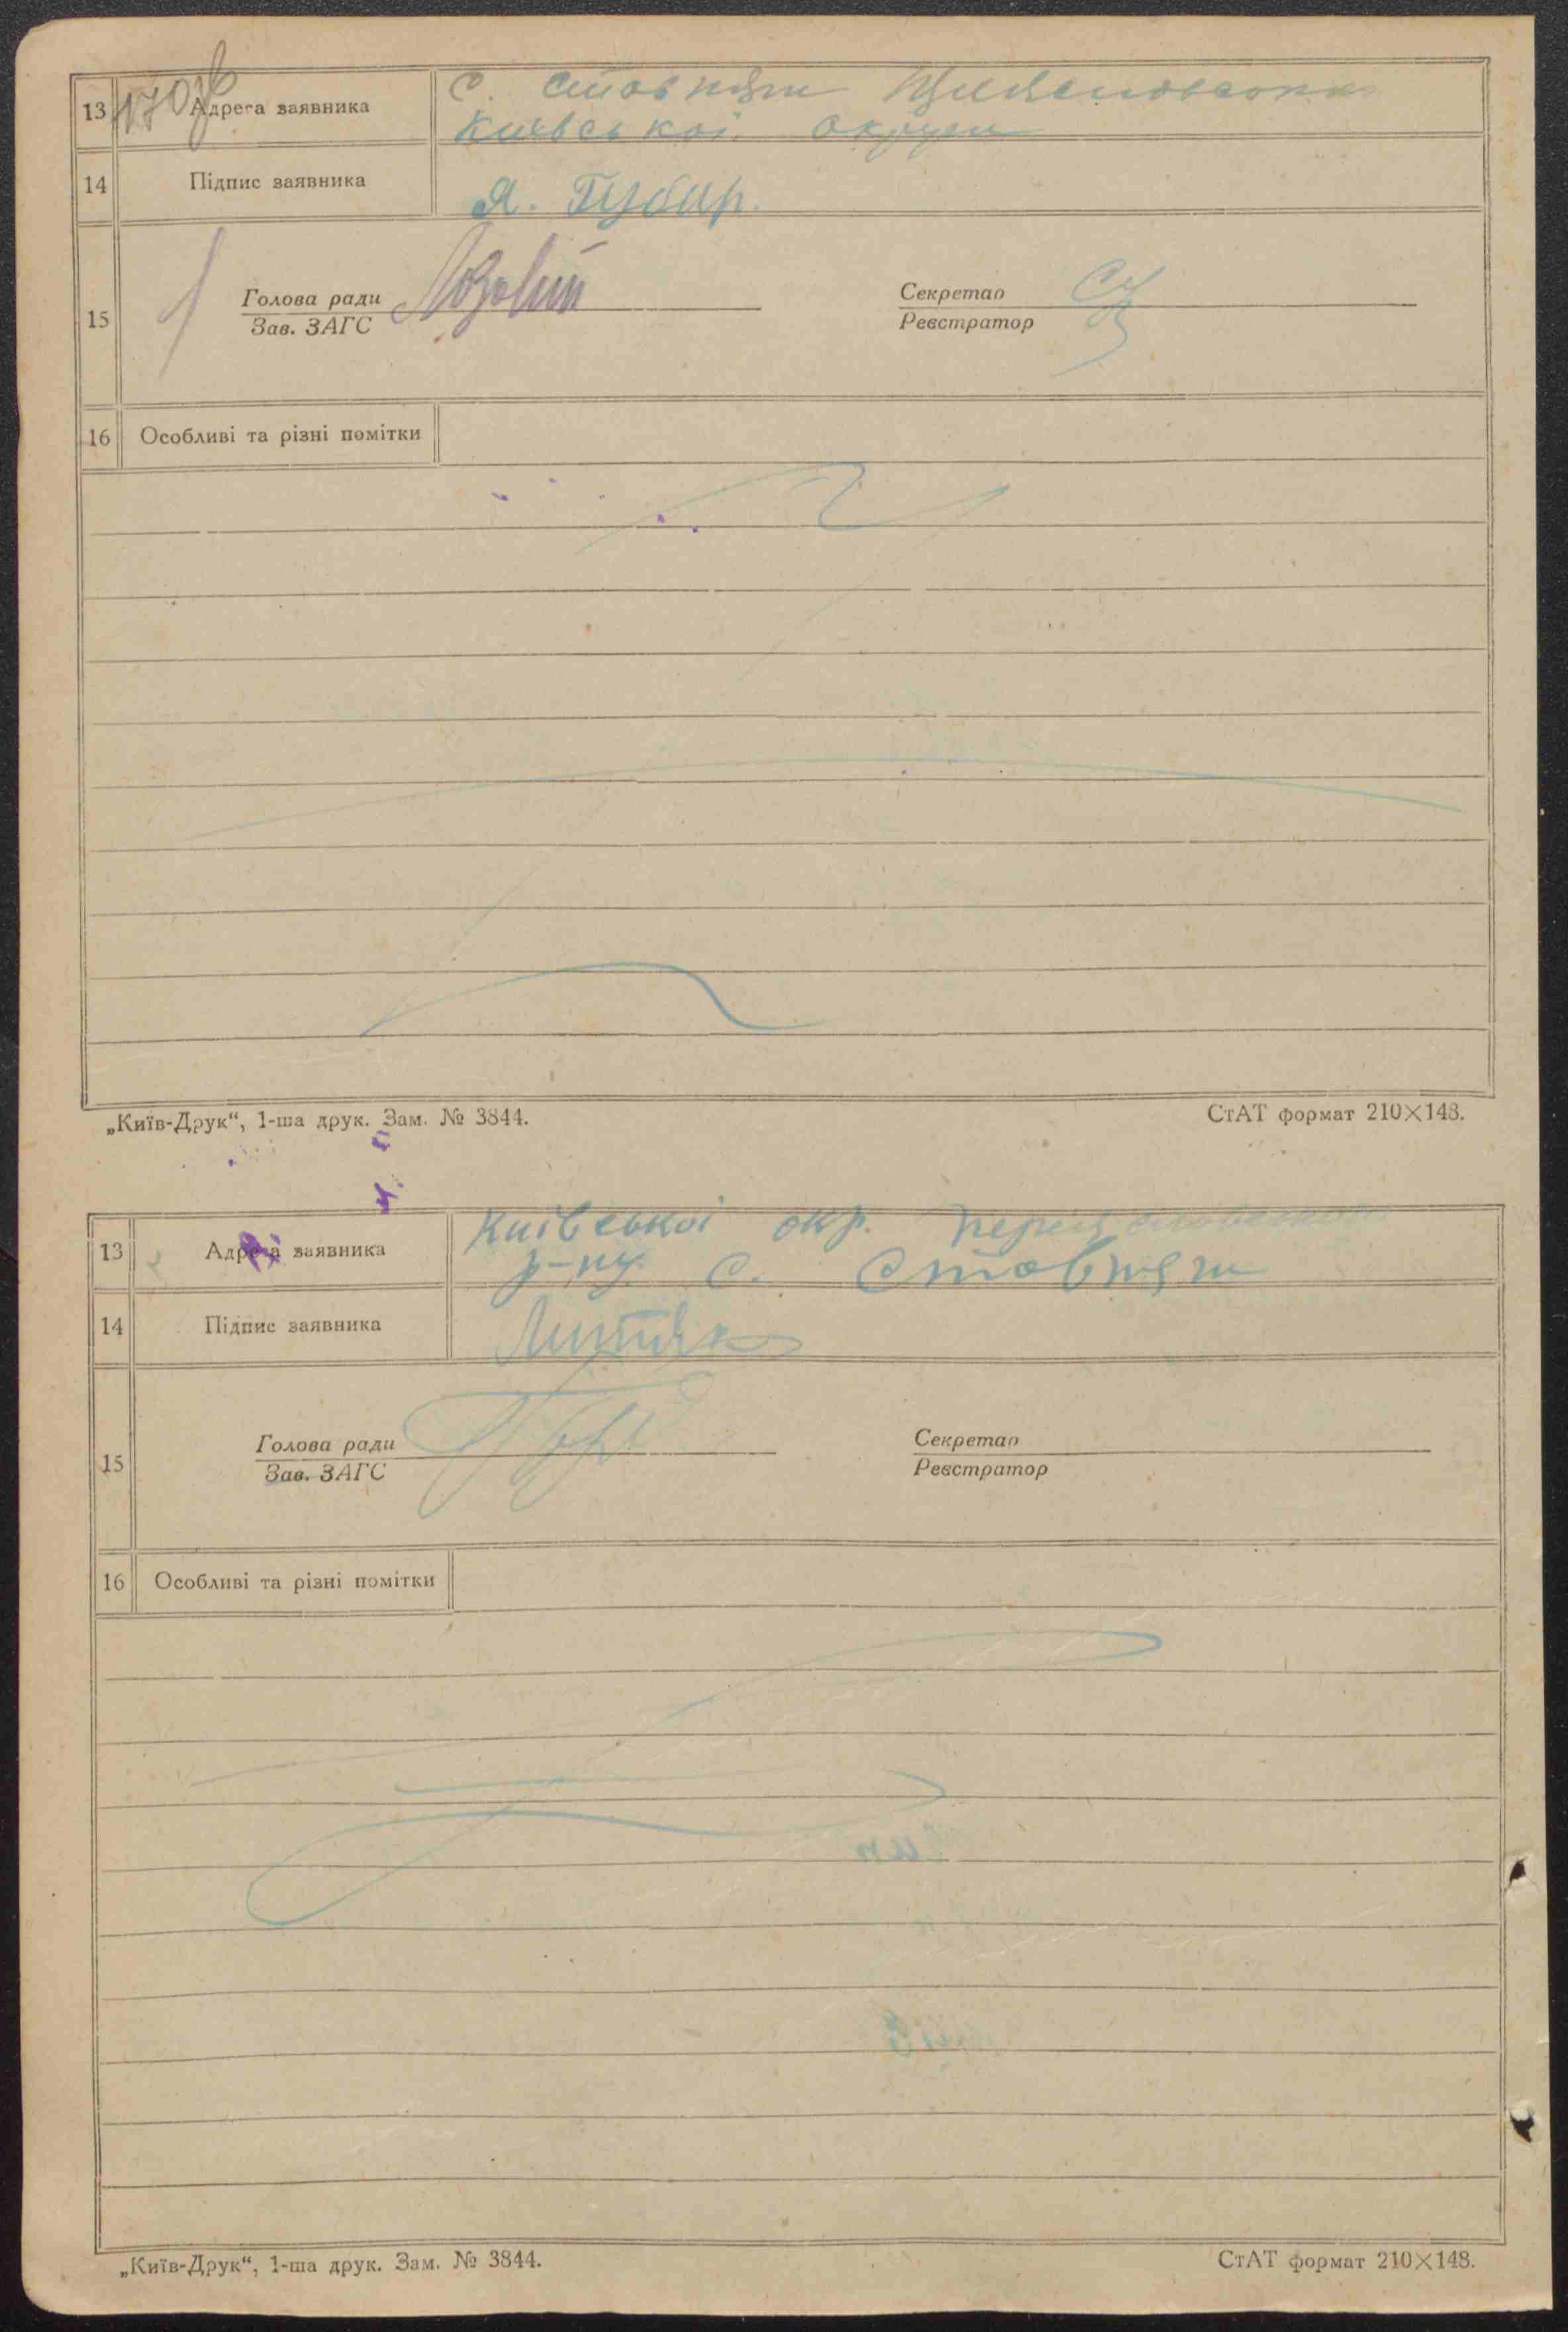 170зв
13 Адреса заявника с. Стовпяги
Київської округи
14 Підпис заявника Я. Губар.
15 Голова ради Лозовий Секретар
Зав. ЗАГС Реєстратор
16 Особливі та різні помітки
„Київ-Друк“, 1-ша друк. Зам. № 3844. СтАТ формат 210×148.
13 Адреса заявника Київської окр.
р-ну. с. Стовпяги
14 Підпис заявника
15 Голова ради Секретар
Зав. ЗАГС Реєстратор
16 Особливі та різні помітки
„Київ-Друк“, 1-ша друк. Зам. № 3844. СтАТ формат 210×148.